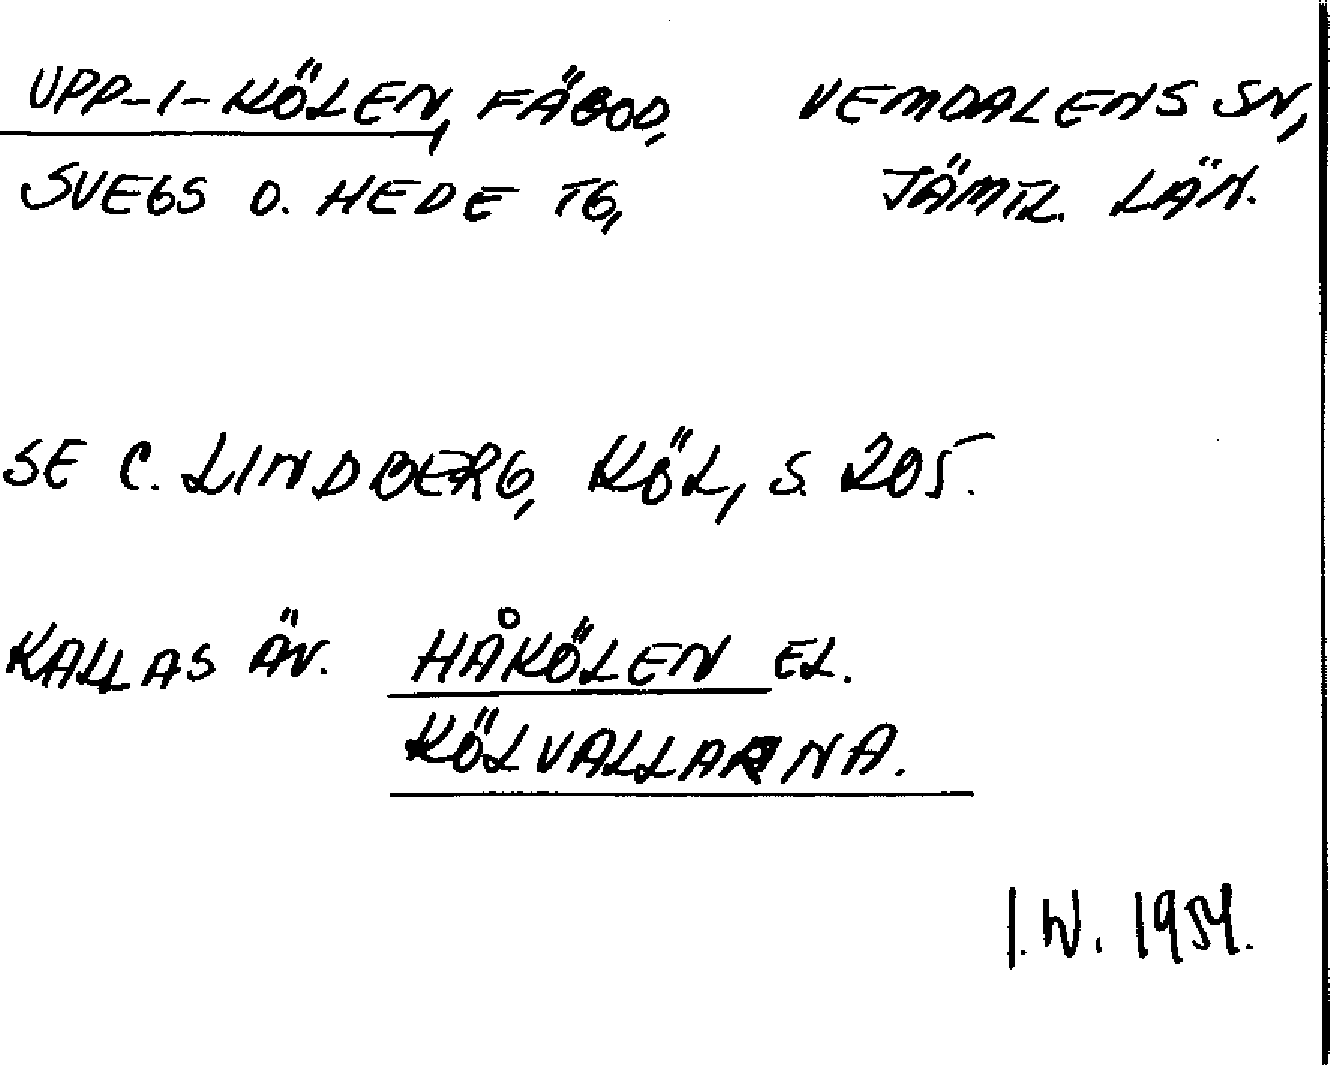 UPP-I-KÖLEN, FÄBOD, VEMDALENS SN,
SVEGS O. HEDE TG, JÄMTL. LÄN.
SE C. LINDBERG, KÖL, S. 205.
KALLAS ÄV. HÅKÖLEN EL.
KÖLVALLARNA.
I.W. 1954.